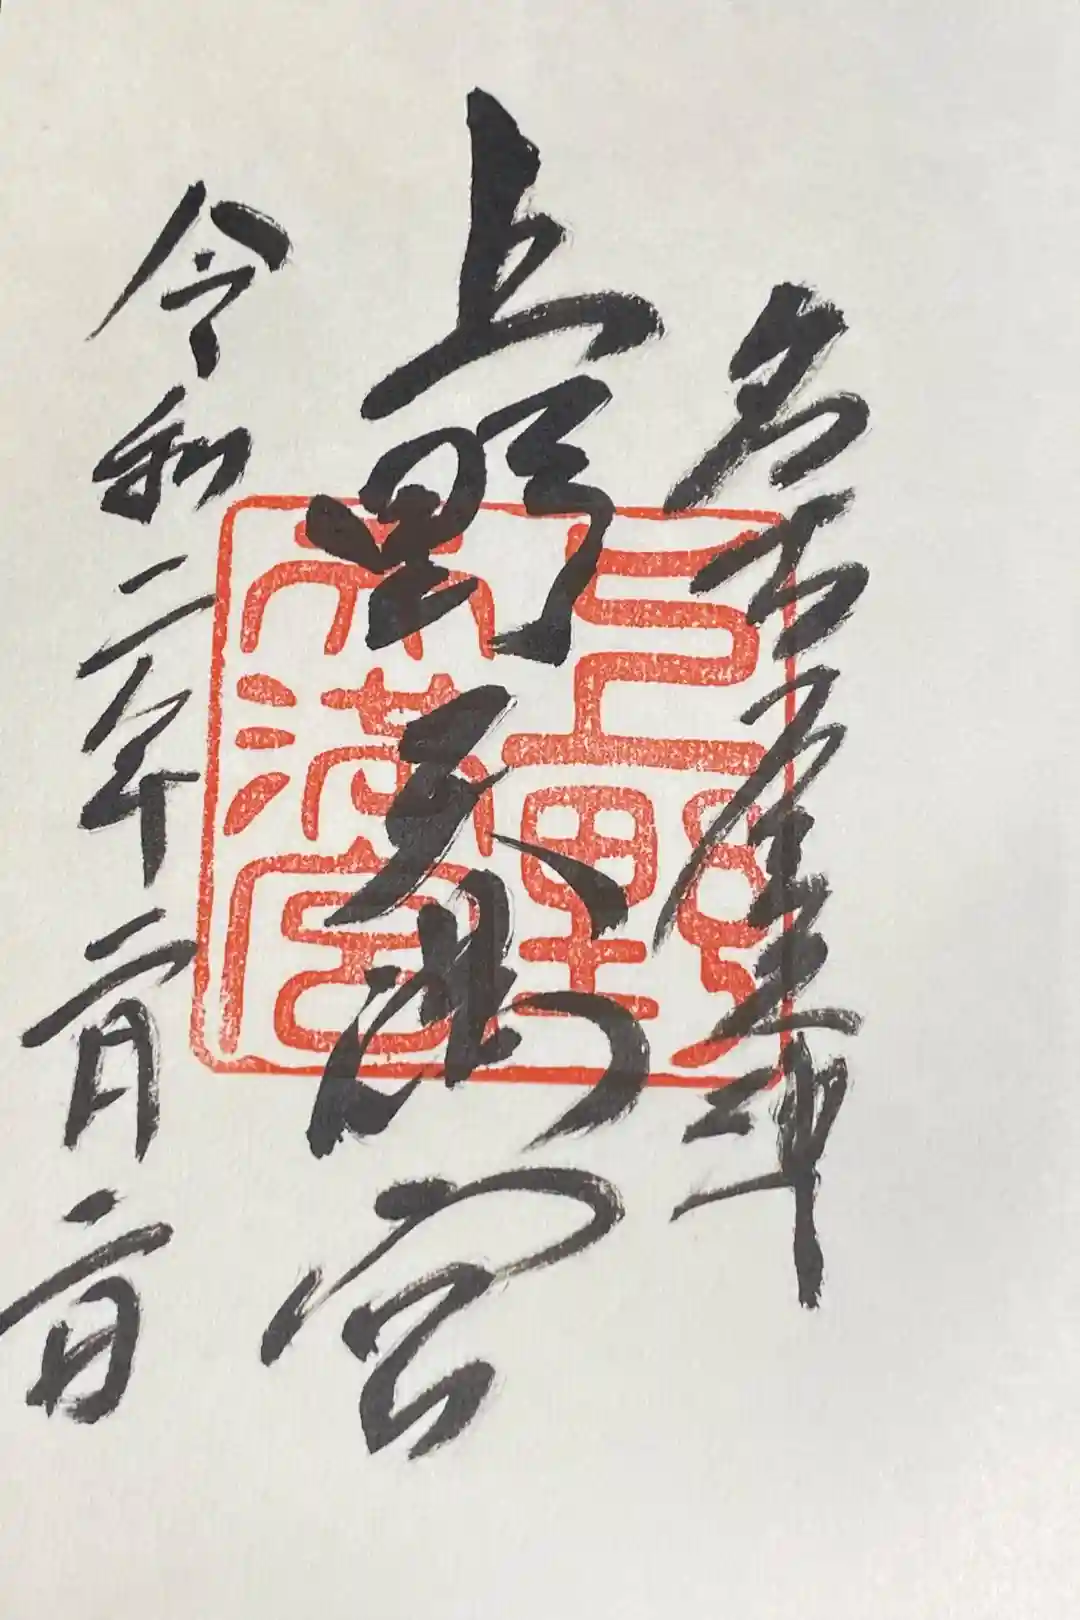 名古屋
上野天満宮
令和二年二月二日
上野
天満宮